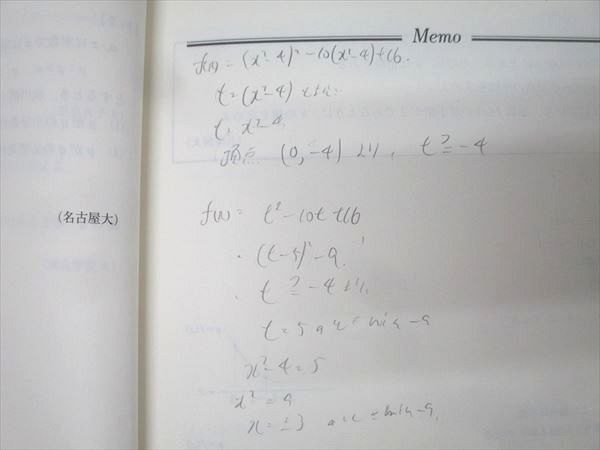 Memo
f(x) = (x²-4)² - 10(x²-4) + 16.
t = (x²-4) とおく
t = x²-4
頂点 (0, -4) より, t ≧ -4
(名古屋大)
f(x) = t² - 10t + 16
・ (t-5)² - 9.
・ t ≧ -4 より,
t = 5 のとき min -9
x²-4 = 5
x² = 9
x = ±3 のとき min -9.